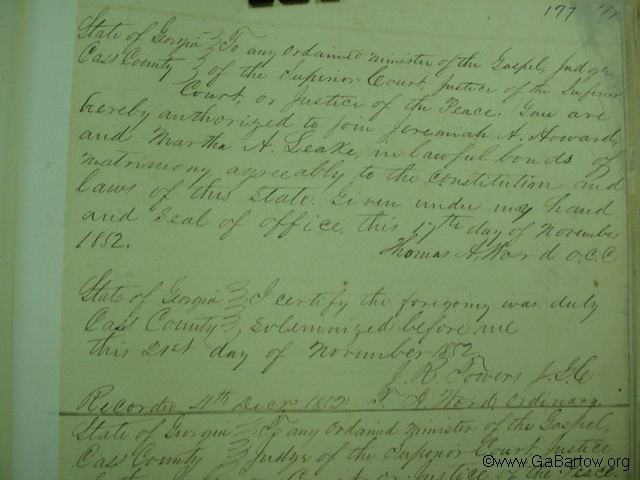 177
State of Georgia } To any ordained minister of the Gospel, Judge
Cass County } of the Superior Court, Justice of the Inferior
Court, or Justice of the Peace. You are
hereby authorized to join Jeremiah A. Howard,
and Martha A. Leake, in lawful bonds of
matrimony agreeably to the Constitution and
laws of this State. Given under my hand
and seal of office, this 17th day of November
1852. Thomas A. Word O.C.C
State of Georgia } I certify the foregoing was duly
Cass County } solemnized before me
this 21st day of November 1852
J. R. Towers J.I.C
Recorded 4th Decr. 1852 T. A. Word, Ordinary.
State of Georgia } To any ordained minister of the Gospel,
Cass County } Judge of the Superior Court, Justice
or Justice of the Peace.
©www.GaBartow.org